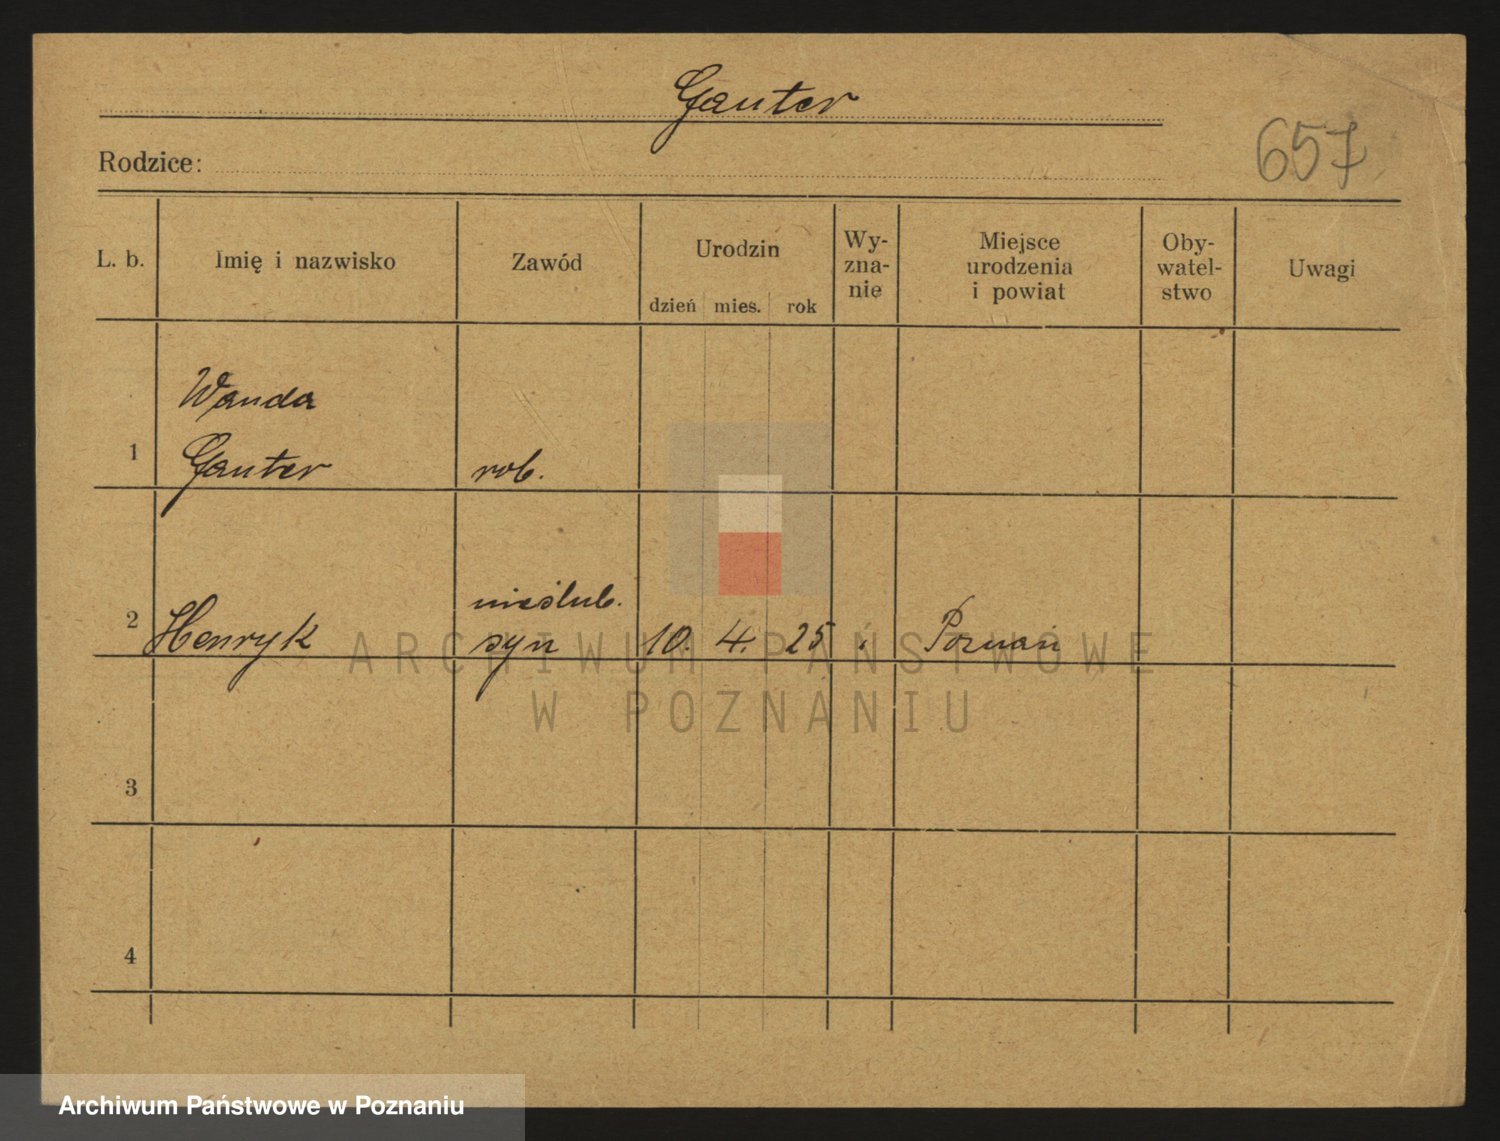 Gauter
657
Rodzice:
L. b.
Imię i nazwisko
Zawód
Urodzin
dzień mies. rok
Wy-
zna-
nie
Miejsce
urodzenia
i powiat
Oby-
watel-
stwo
Uwagi
Wanda
1 Gauter rob.
nieślub.
2 Henryk syn 10. 4. 25 Poznań
3
4
ARCHIWUM PAŃSTWOWE
W POZNANIU
Archiwum Państwowe w Poznaniu